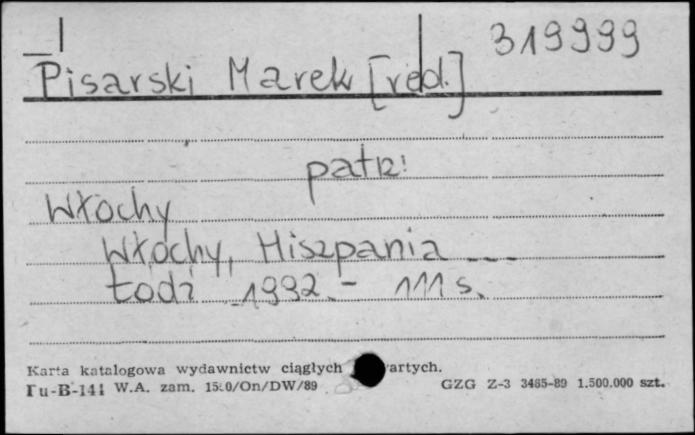 319999
Pisarski Marek [red.]
patrz:
Włochy
Włochy, Hiszpania ---
Łódź 1992.- 111 s.
Karta katalogowa wydawnictw ciągłych artych.
Pu-B-141 W.A. zam. /On/DW/89 GZG Z-3 3485-89 1.500.000 szt.